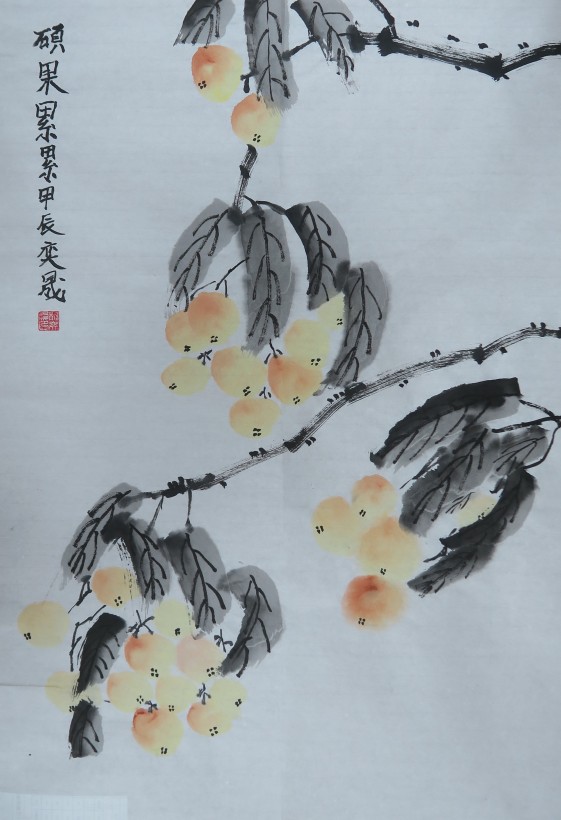 硕果累累甲辰奕晟